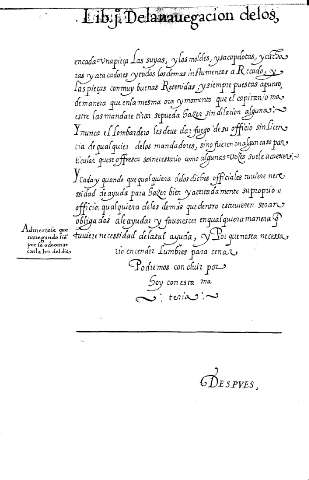 Lib. j. De la nauegacion de los,
en cada vna pieça Las suyas, y los moldes, y sacapelotas, y cucha
ras y atacadores y todos los demas instrumentos a Recado, y
las pieças con muy buenas Retenidas y siempre puestas a punto,
de manera que en la mesma ora y momento que el capitan o ma
estre las mandare tirar se pueda hazer sin dilacion alguna.
Y nunca el Lombardero les deue dar fuego de su officio sin licen
cia de qualquier de los mandadores, sino fuere en algun caso par
ticular que se offresca ser necessario como algunas vezes suele acaecer.
Y cada y quando que qualquiera de los dichos officiales tuuiere nece
ssidad de ayuda para hazer bien y acertadamente su propio
officio, qualquiera de los demas que dentro estuuieren seran
obligados de ayudar y fauorescer en qualquiera manera q̃
tuuiere necessidad de la tal ayuda, y Por que no sera necessa
rio encender Lumbres para cenar
Podremos concluir por
hoy con esta ma
teria:
Aduertencia que
nauegando
DESPVES,